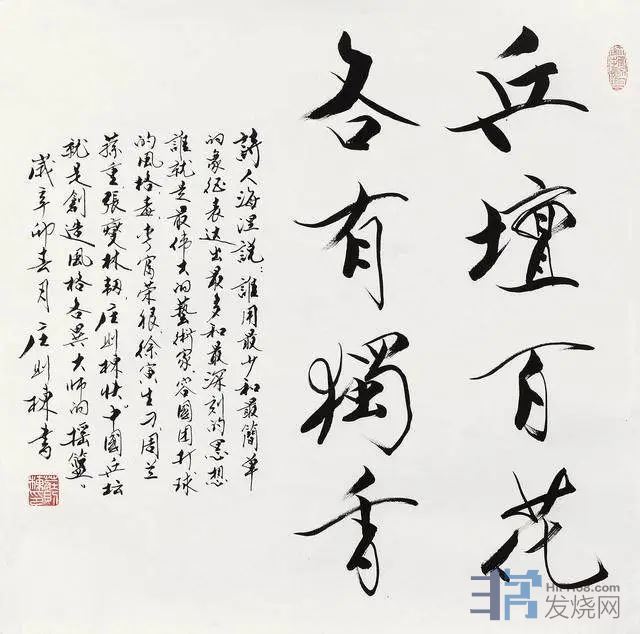 乒壇百花
各有獨香
詩人海涅説：誰用最少和最簡單
的象征表达出最多和最深刻的思想
誰就是最伟大的藝術家容國团打球
的風格是 甯榮狠徐寅生刁周兰
蓀重張燮林韌庄则棟快中國乒坛
就是創造風格各異大师的摇籃。
歲辛卯春月庄则棟書
HIFI168.com
发烧网